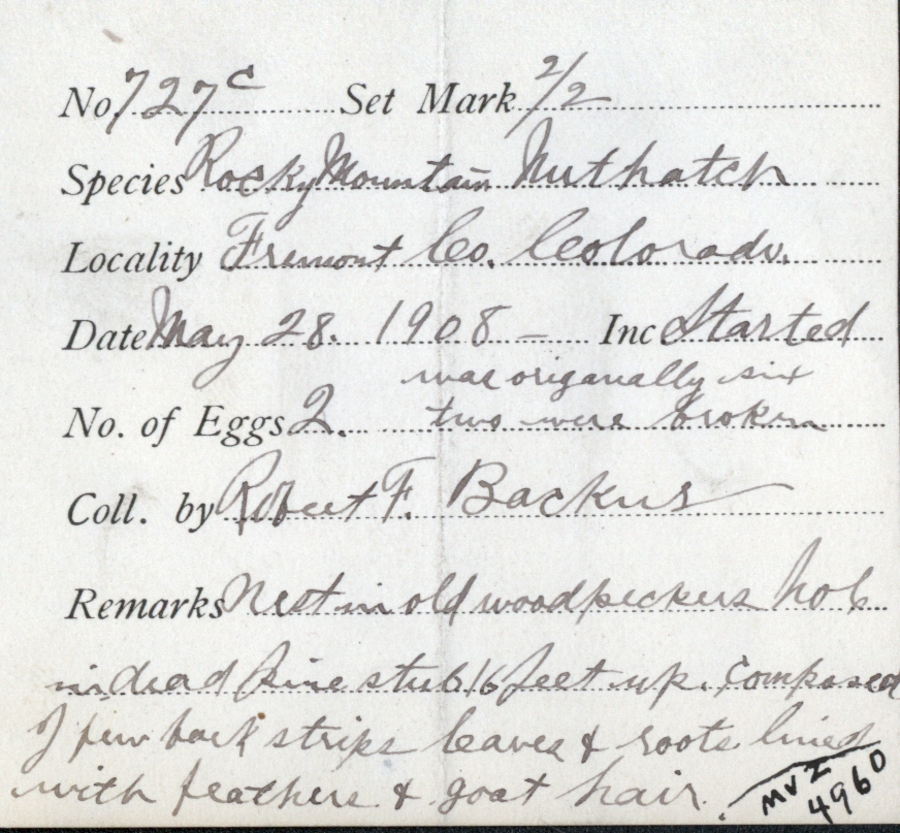 No. 727c Set Mark 2/2
Species Rocky Mountain Nuthatch
Locality Fremont Co. Colorado.
Date May 28. 1908 — Inc Started
was origanally six
No. of Eggs 2. two were broken
Coll. by Robert F. Backus
Remarks Nest in old woodpeckers hole
in dead pine stub 16 feet up. Composed
of few bark strips leaves & roots lined
with feathers & goat hair.
MVZ
4960